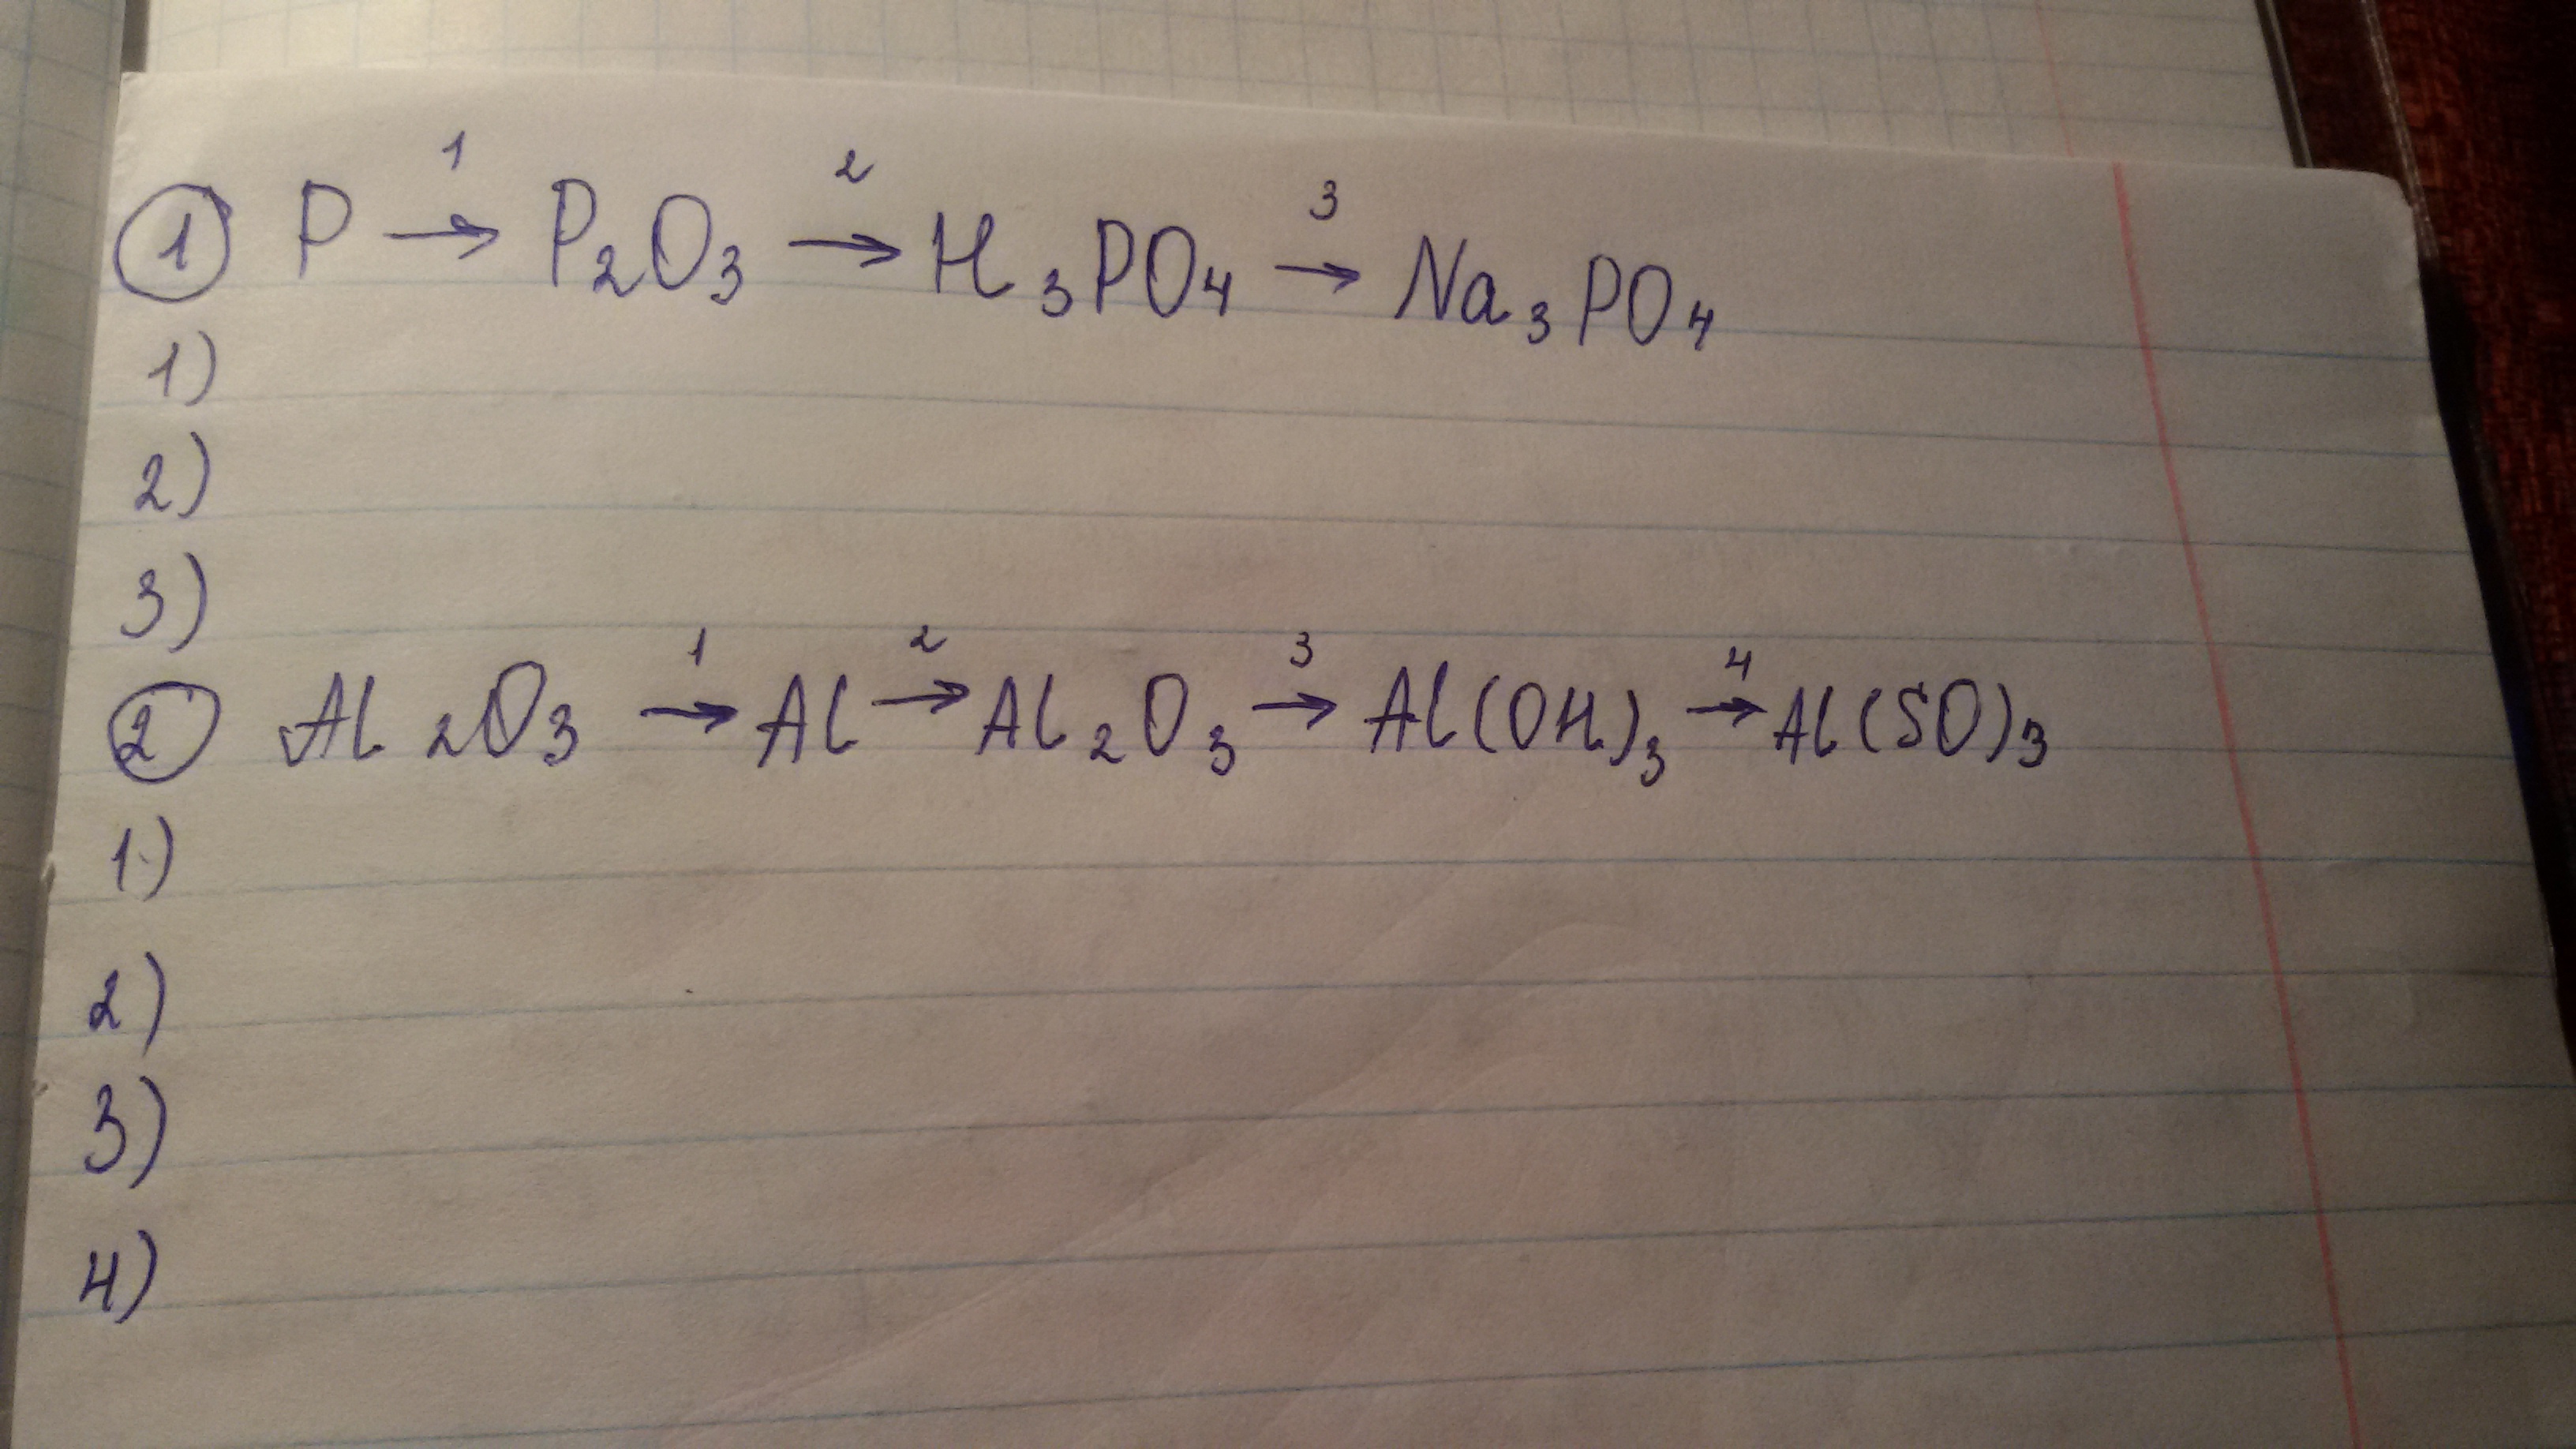 ① P →¹ P₂O₃ →² H₃PO₄ →³ Na₃PO₄
1)
2)
3)
② Al₂O₃ →¹ Al →² Al₂O₃ →³ Al(OH)₃ →⁴ Al(SO)₃
1)
2)
3)
4)